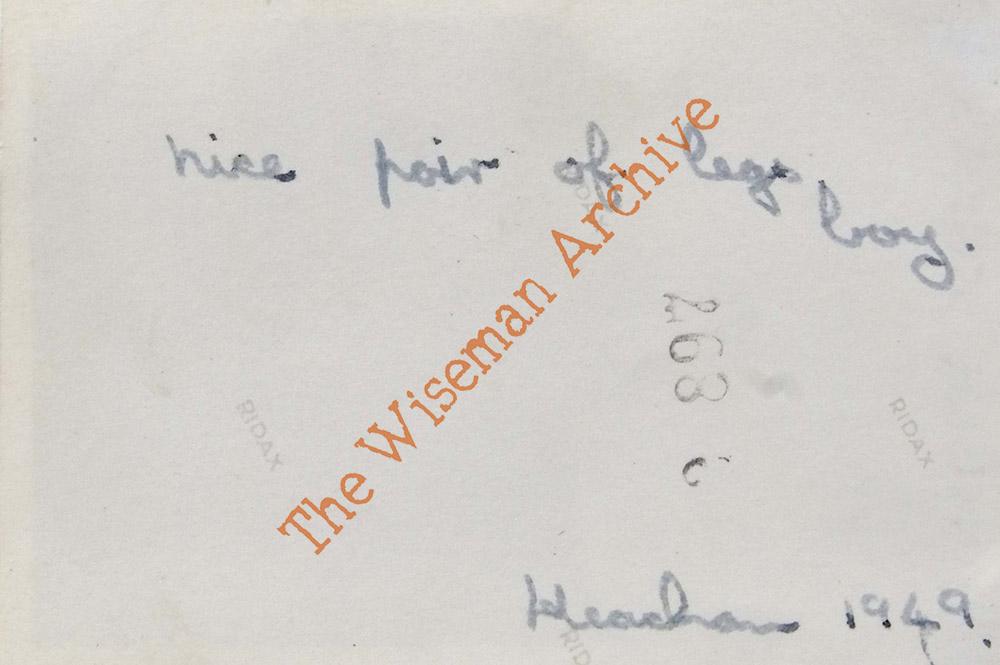 nice pair of legs
boy.
The Wiseman Archive
263
RIDAX
RIDAX
Heacham 1949.